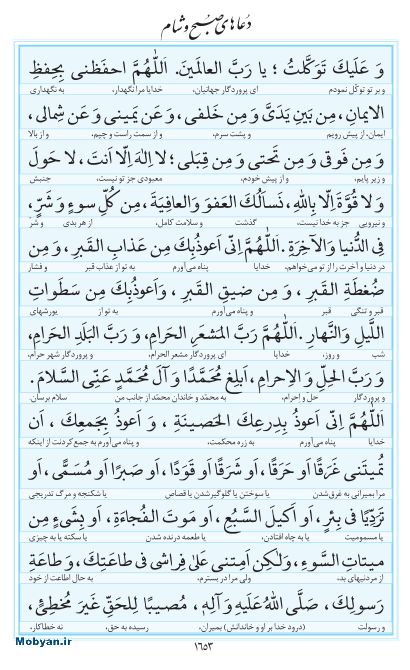 دعاهای صبح و شام
وَ عَلَیكَ تَوَكَّلتُ ؛ یا رَبَّ العالَمینَ. اَللّٰهُمَّ احفَظنی بِحِفظِ
و بر تو توکّل نمودم ای پروردگار جهانیان، خدایا مرا نگهدار، به نگهداری
الایمانِ، مِن بَینِ یَدَیَّ وَ مِن خَلفی، وَ عَن یَمینی وَ عَن شِمالی،
ایمان، از پیش رویم و پشت سرم، و از سمت راست و چپم، و از بالا
وَ مِن فَوقی وَ مِن تَحتی وَ مِن قِبَلی ؛ لا اِلٰهَ اِلّا اَنتَ، لا حَولَ
و زیر پایم، و از پیش خودم، معبودی جز تو نیست، جنبش
وَ لا قُوَّةَ اِلّا بِاللّٰهِ، نَسأَلُكَ العَفوَ وَ العافِیَةَ، مِن كُلِّ سوءٍ وَ شَرٍّ،
و نیرویی جز به خدا نیست، گذشت و سلامت کامل، از هر بدی و شرّ
فِی الدُّنیا وَ الآخِرَةِ. اَللّٰهُمَّ اِنّی اَعوذُ بِكَ مِن عَذابِ القَبرِ، وَ مِن
در دنیا و آخرت را از تو می‌خواهم، خدایا پناه می‌آورم به تو از عذاب قبر و فشار
ضُغطَةِ القَبرِ ، وَ مِن ضیقِ القَبرِ ، وَ اَعوذُ بِكَ مِن سَطَواتِ
قبر و تنگی قبر و پناه می‌آورم به تو از یورشهای
اللَّیلِ وَ النَّهارِ. اَللّٰهُمَّ رَبَّ المَشعَرِ الحَرامِ، وَ رَبَّ البَلَدِ الحَرامِ،
شب و روز، خدایا ای پروردگار مشعر الحرام، و پروردگار شهر حرام،
وَ رَبَّ الحِلِّ وَ الاِحرامِ، اَبلِغ مُحَمَّدًا وَ آلَ مُحَمَّدٍ عَنِّی السَّلامَ.
و پروردگار حلّ و احرام، به محمّد و خاندان محمّد از جانب من سلام برسان.
اَللّٰهُمَّ اِنّی اَعوذُ بِدِرعِكَ الحَصینَةِ ، وَ اَعوذُ بِجَمعِكَ ، اَن
خدایا پناه می‌آورم به زره محکمت، و پناه می‌آورم به جمع کردنت از اینکه
تُمیتَنی غَرَقًا اَو حَرَقًا، اَو شَرَقًا اَو قَوَدًا، اَو صَبرًا اَو مُسَمًّی، اَو
مرا بمیرانی به غرق‌شدن یا سوختن یا گلوگیرشدن یا قصاص یا شکنجه و مرگ تدریجی
تَرَدِّیًا فی بِئرٍ، اَو اَكیلَ السَّبُعِ ، اَو مَوتَ الفُجاءَةِ، اَو بِشَیءٍ مِن
یا مسمومیت یا به چاه افتادن، یا طعمه درنده شدن یا سکته یا به چیزی
میتاتِ السَّوءِ، وَ لٰكِن اَمِتنی عَلٰی فِراشی فی طاعَتِكَ، وَ طاعَةِ
از مردنیهای بد، ولی مرا در بسترم، به حال اطاعت از خود
رَسولِكَ، صَلَّی اللّٰهُ عَلَیهِ وَ آلِهِ، مُصیبًا لِلحَقِّ غَیرَ مُخطِئٍ،
و رسولت (درود خدا بر او و خاندانش) بمیران، رسیده به حق، نه خطاکار،
۱۶۵۳
Mobyan.ir